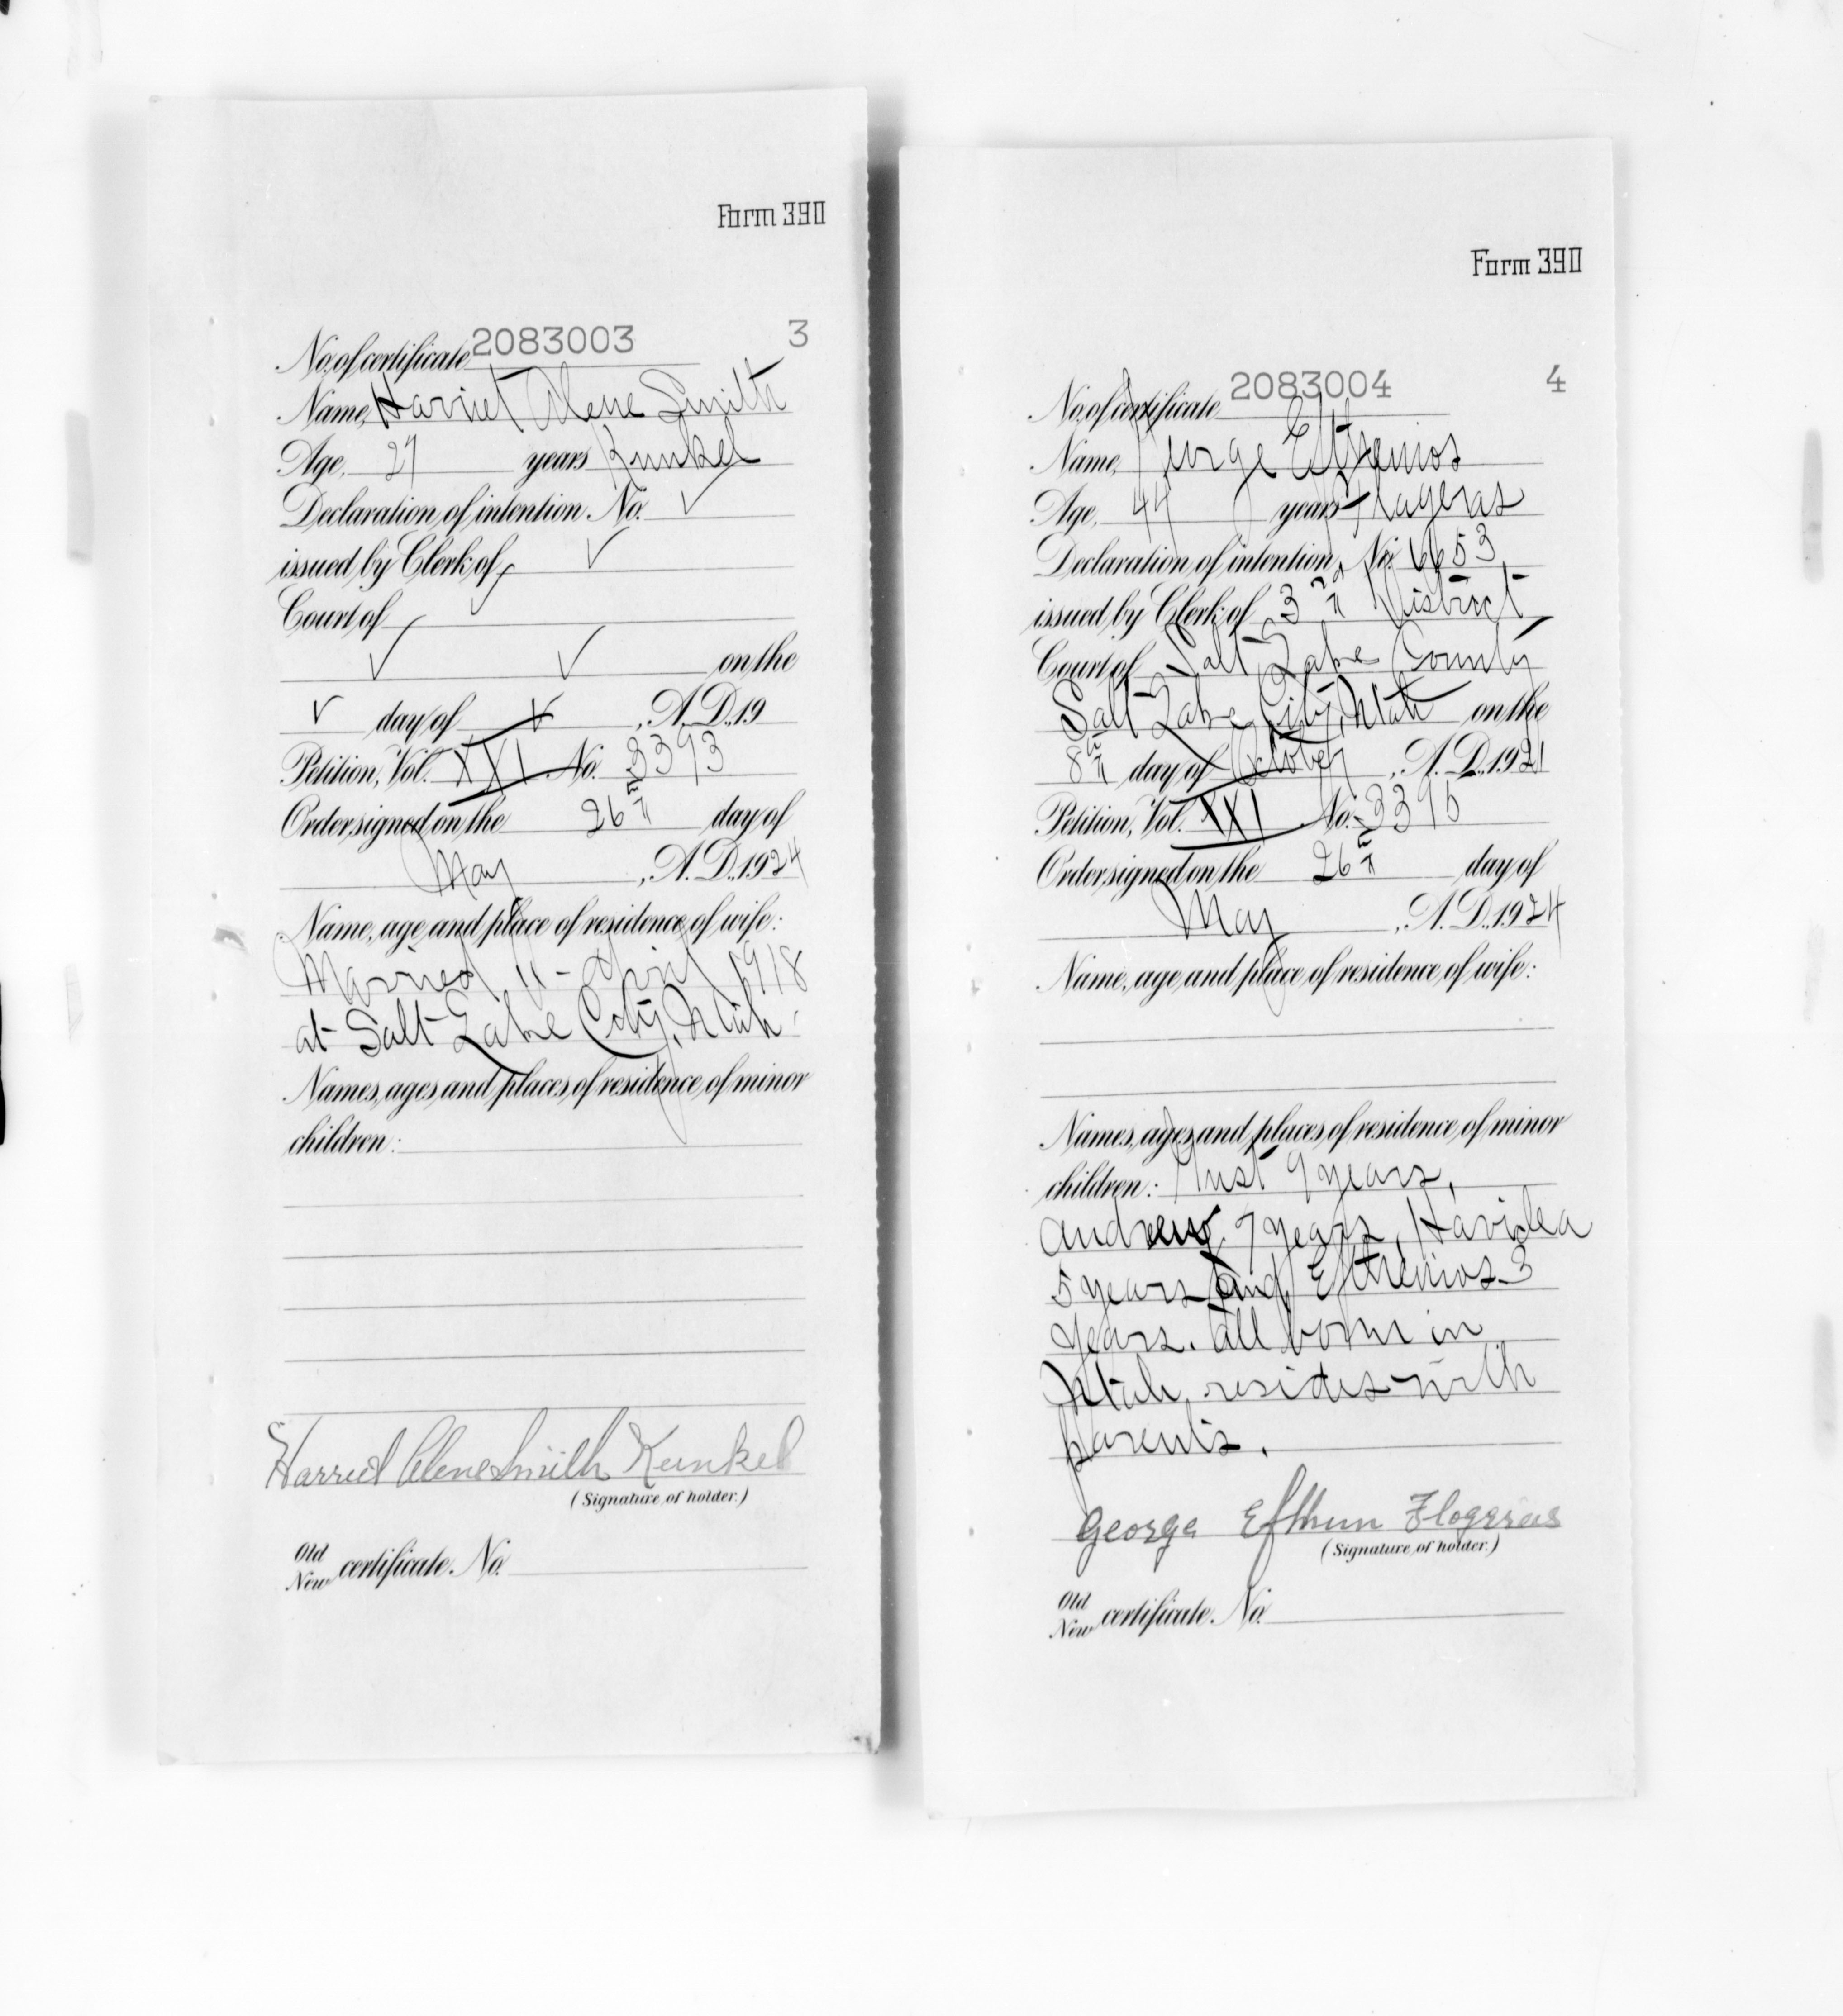 Form 390
No. of certificate 2083003 3
Name, Harriet Alene Smith
Age, 27 years Kunkel
Declaration of intention No. ✓
issued by Clerk of ✓
Court of
✓ ✓ on the
✓ day of ✓, A. D. 19
Petition, Vol. XXI No. 3393
Order signed on the 26th day of
May, A. D., 1924
Name, age and place of residence of wife:
Married 11-April 1918
at Salt Lake City, Utah.
Names, ages and places of residence of minor
children:
Harriet Alene Smith Kunkel
(Signature of holder.)
Old
New certificate No.
Form 390
No. of certificate 2083004 4
Name, George Efthemios
Age, 44 years Flageras
Declaration of intention, No. 6653
issued by Clerk of 3rd District
Court of Salt Lake County
Salt Lake City, Utah on the
8th day of October, A. D., 1921
Petition, Vol. XXI No. 3395
Order signed on the 26th day of
May, A. D., 1924
Name, age and place of residence of wife:
Names, ages and places of residence of minor
children: 9 years,
Andrew 7 years,
5 years and Efthemios 3
years. all born in
Utah, resides with
parents.
George Efthem Flogeras
(Signature of holder.)
Old
New certificate No.